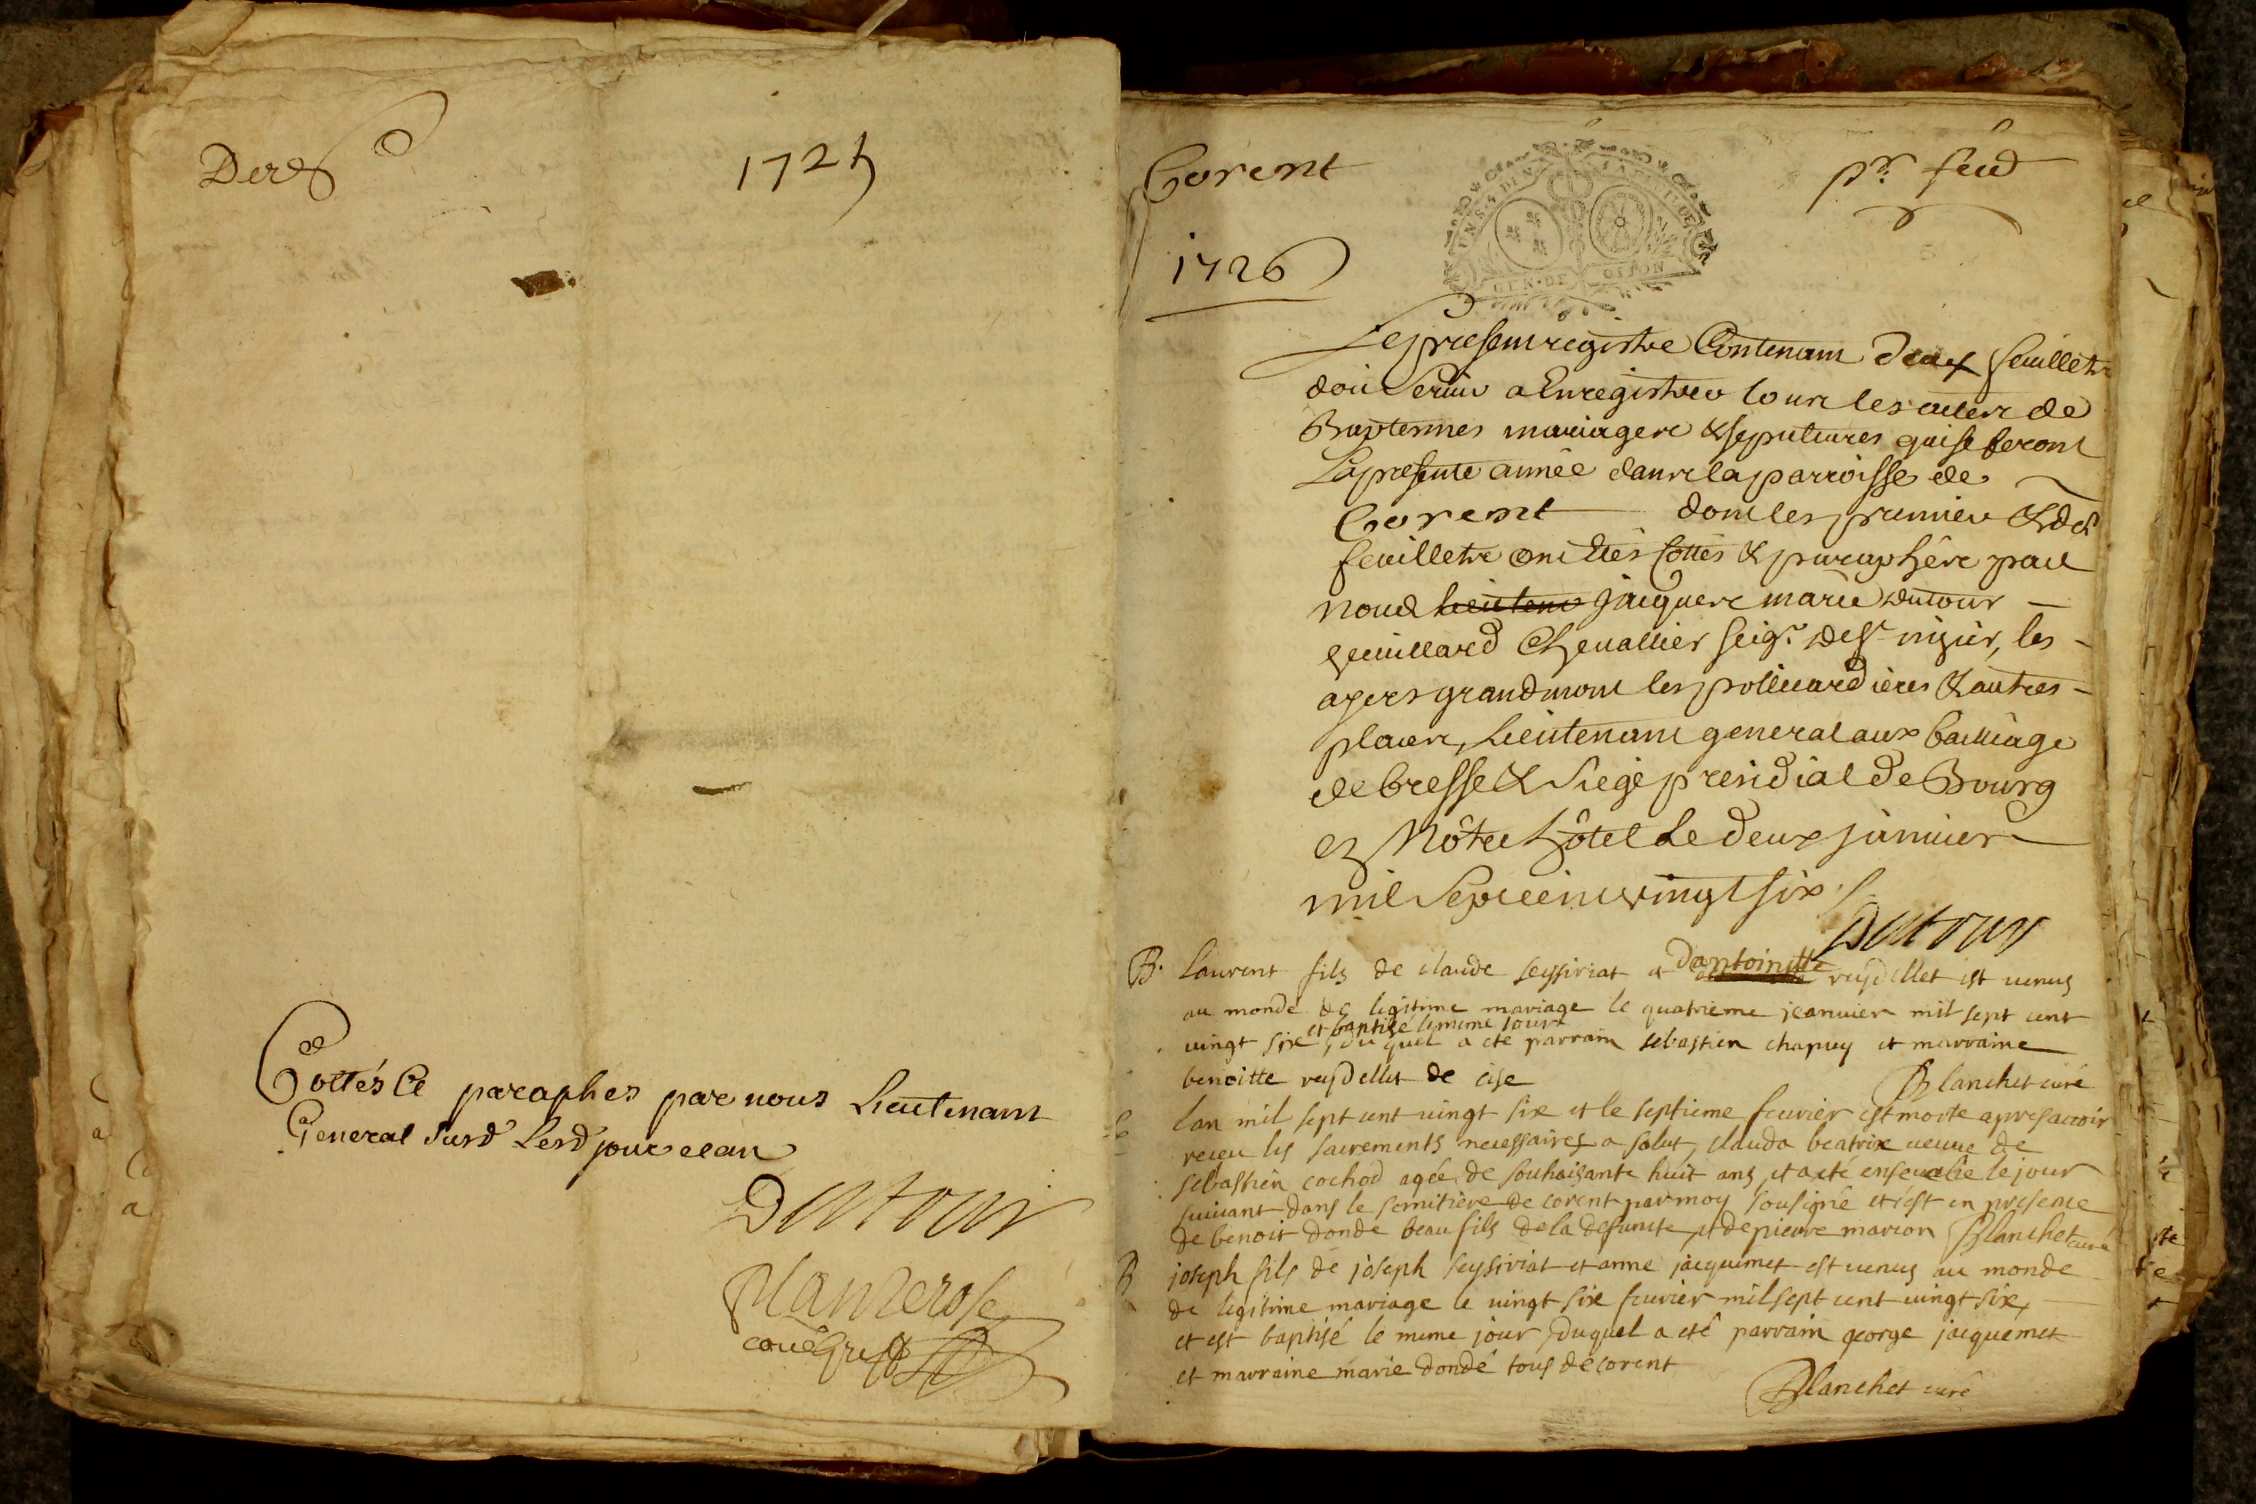 Der
1725
Cottés Et paraphes par nous Lieutenant
General Susd Lesd jour et an
Dutour
Corent
pr feuil
1726
GEN · DE DIJON
Le present registre Contenant deux feuillets
doit servir a Enregistrer tous les actes de
Baptemes mariages & sepultures qui se feront
La presente année dans la parroisse de
Corent dont les premier &
feuillets ont Etés Cottés & paraphés par
nous Lieutenant jacques marie dutour
Chevallier seigr de st nizier, les
ayers grandmont les & autres
places, Lieutenant general aux bailliage
de bresse & siege presidial de Bourg
en Nôtre hôtel Le deux janvier
mil sept cent vingt six
Dutour
B. Laurent fils de claude seyssiriat et Dantoinette reydellet est venus
au monde de legitime mariage le quatrieme jeanvier mil sept cent
et baptisé le meme jour
vingt six, du quel a eté parrain sebastien chapuy et marraine
benoitte reydellet de cise Blanchet curé
Lan mil sept cent vingt six et le septieme fevrier est morte apres avoir
receu les sacrements necessaires a salut, clauda beatrix veuve de
sebastien cochod agée de souhaisante huit ans et a eté ensevelie le jour
suivant dans le semitiere de corent par moy sousigné et c'est en presence
de benoit donde beau fils de la defuncte et de pierre marion Blanchet curé
B joseph fils de joseph seysiriat et anne jacquemet est venus au monde
de legitime mariage le vingt six fevrier mil sept cent vingt six,
et est baptisé le meme jour, duquel a eté parrain george jacquemet
et marraine marie dondé tous de corent
Blanchet curé